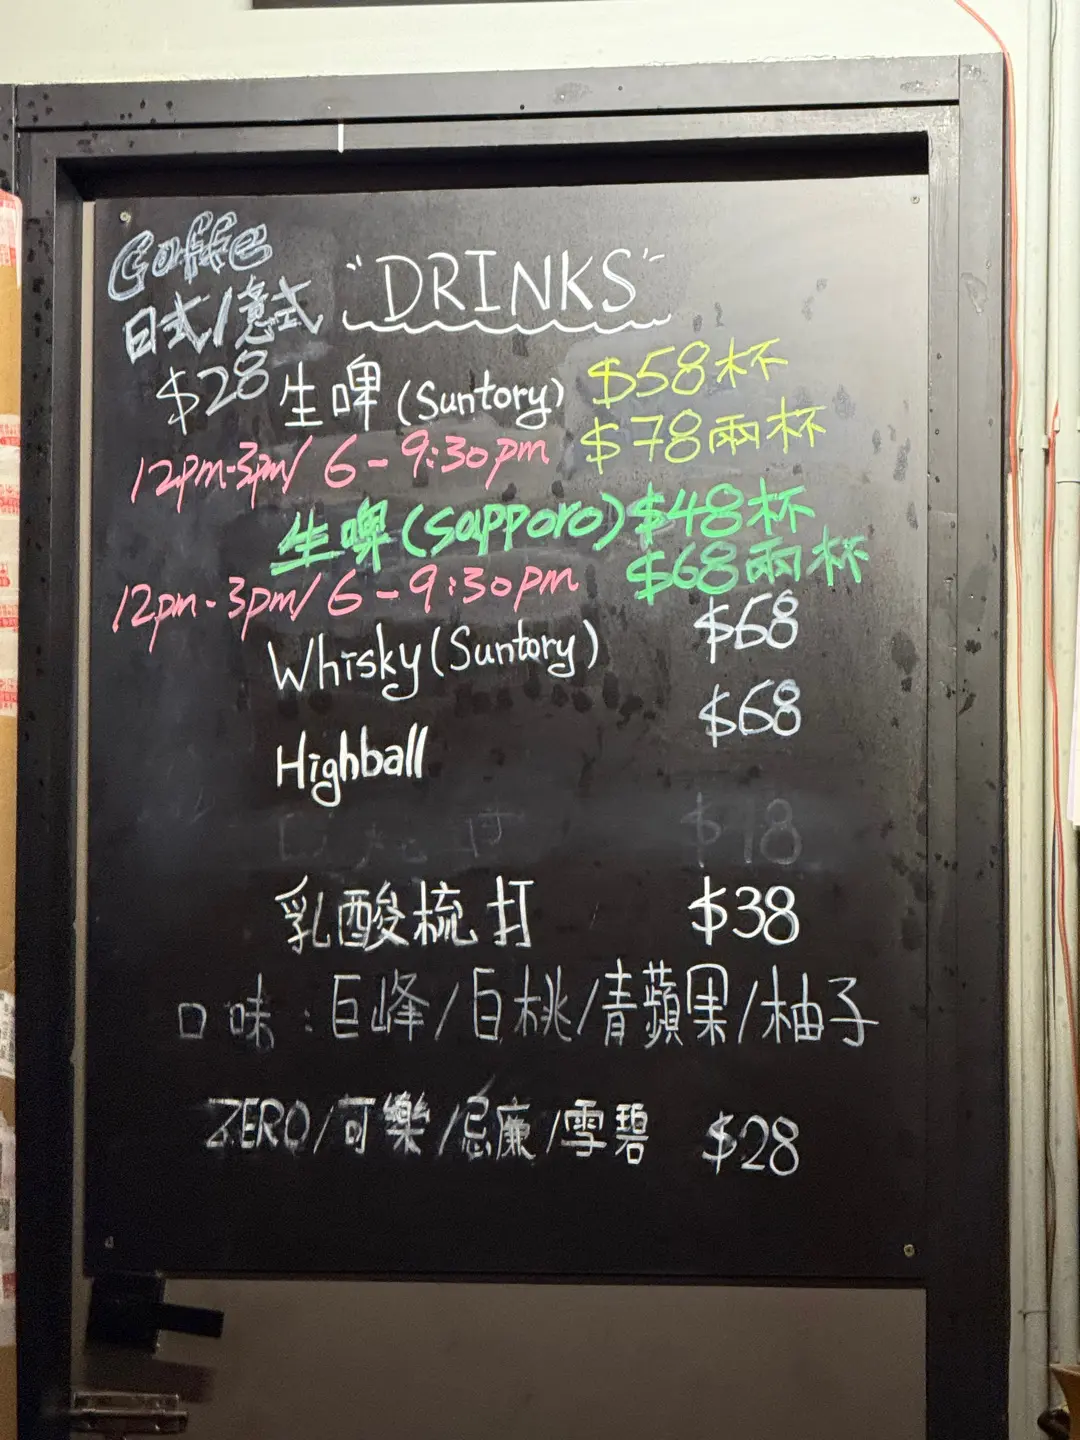 Coffee
日式/意式
$28
"DRINKS"
生啤 (Suntory) $58杯
$78兩杯
12pm-3pm/ 6-9:30pm
生啤 (Sapporo) $48杯
$68兩杯
12pm-3pm/ 6-9:30pm
Whisky (Suntory) $68
Highball $68
乳酸梳打 $38
口味:巨峰/白桃/青蘋果/柚子
ZERO/可樂/忌廉/雪碧 $28